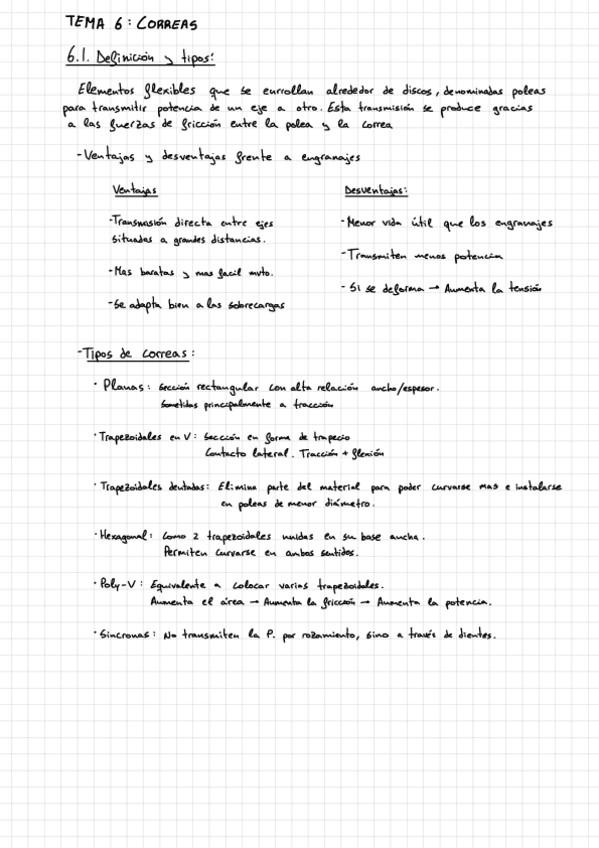 TEMA 6: CORREAS
6.1. Definición y tipos:
Elementos flexibles que se enrrollan alrededor de discos, denominadas poleas
para transmitir potencia de un eje a otro. Esta transmisión se produce gracias
a las fuerzas de fricción entre la polea y la correa
-Ventajas y desventajas frente a engranajes
Ventajas
-Transmisión directa entre ejes
situadas a grandes distancias.
-Mas baratas y mas facil mnto.
-Se adapta bien a las sobrecargas
Desventajas:
-Menor vida útil que los engranajes
-Transmiten menos potencia
-Si se deforma → Aumenta la tensión
-Tipos de correas:
· Planas: Sección rectangular con alta relación ancho/espesor.
Sometidas principalmente a tracción
· Trapezoidales en V: Sección en forma de trapecio
Contacto lateral. Tracción + flexión
· Trapezoidales dentadas: Elimina parte del material para poder curvarse mas e instalarse
en poleas de menor diámetro.
· Hexagonal: Como 2 trapezoidales unidas en su base ancha.
Permiten curvarse en ambos sentidos.
· Poly-V: Equivalente a colocar varias trapezoidales.
Aumenta el área → Aumenta la fricción → Aumenta la potencia.
· Sincronas: No transmiten la P. por rozamiento, sino a través de dientes.